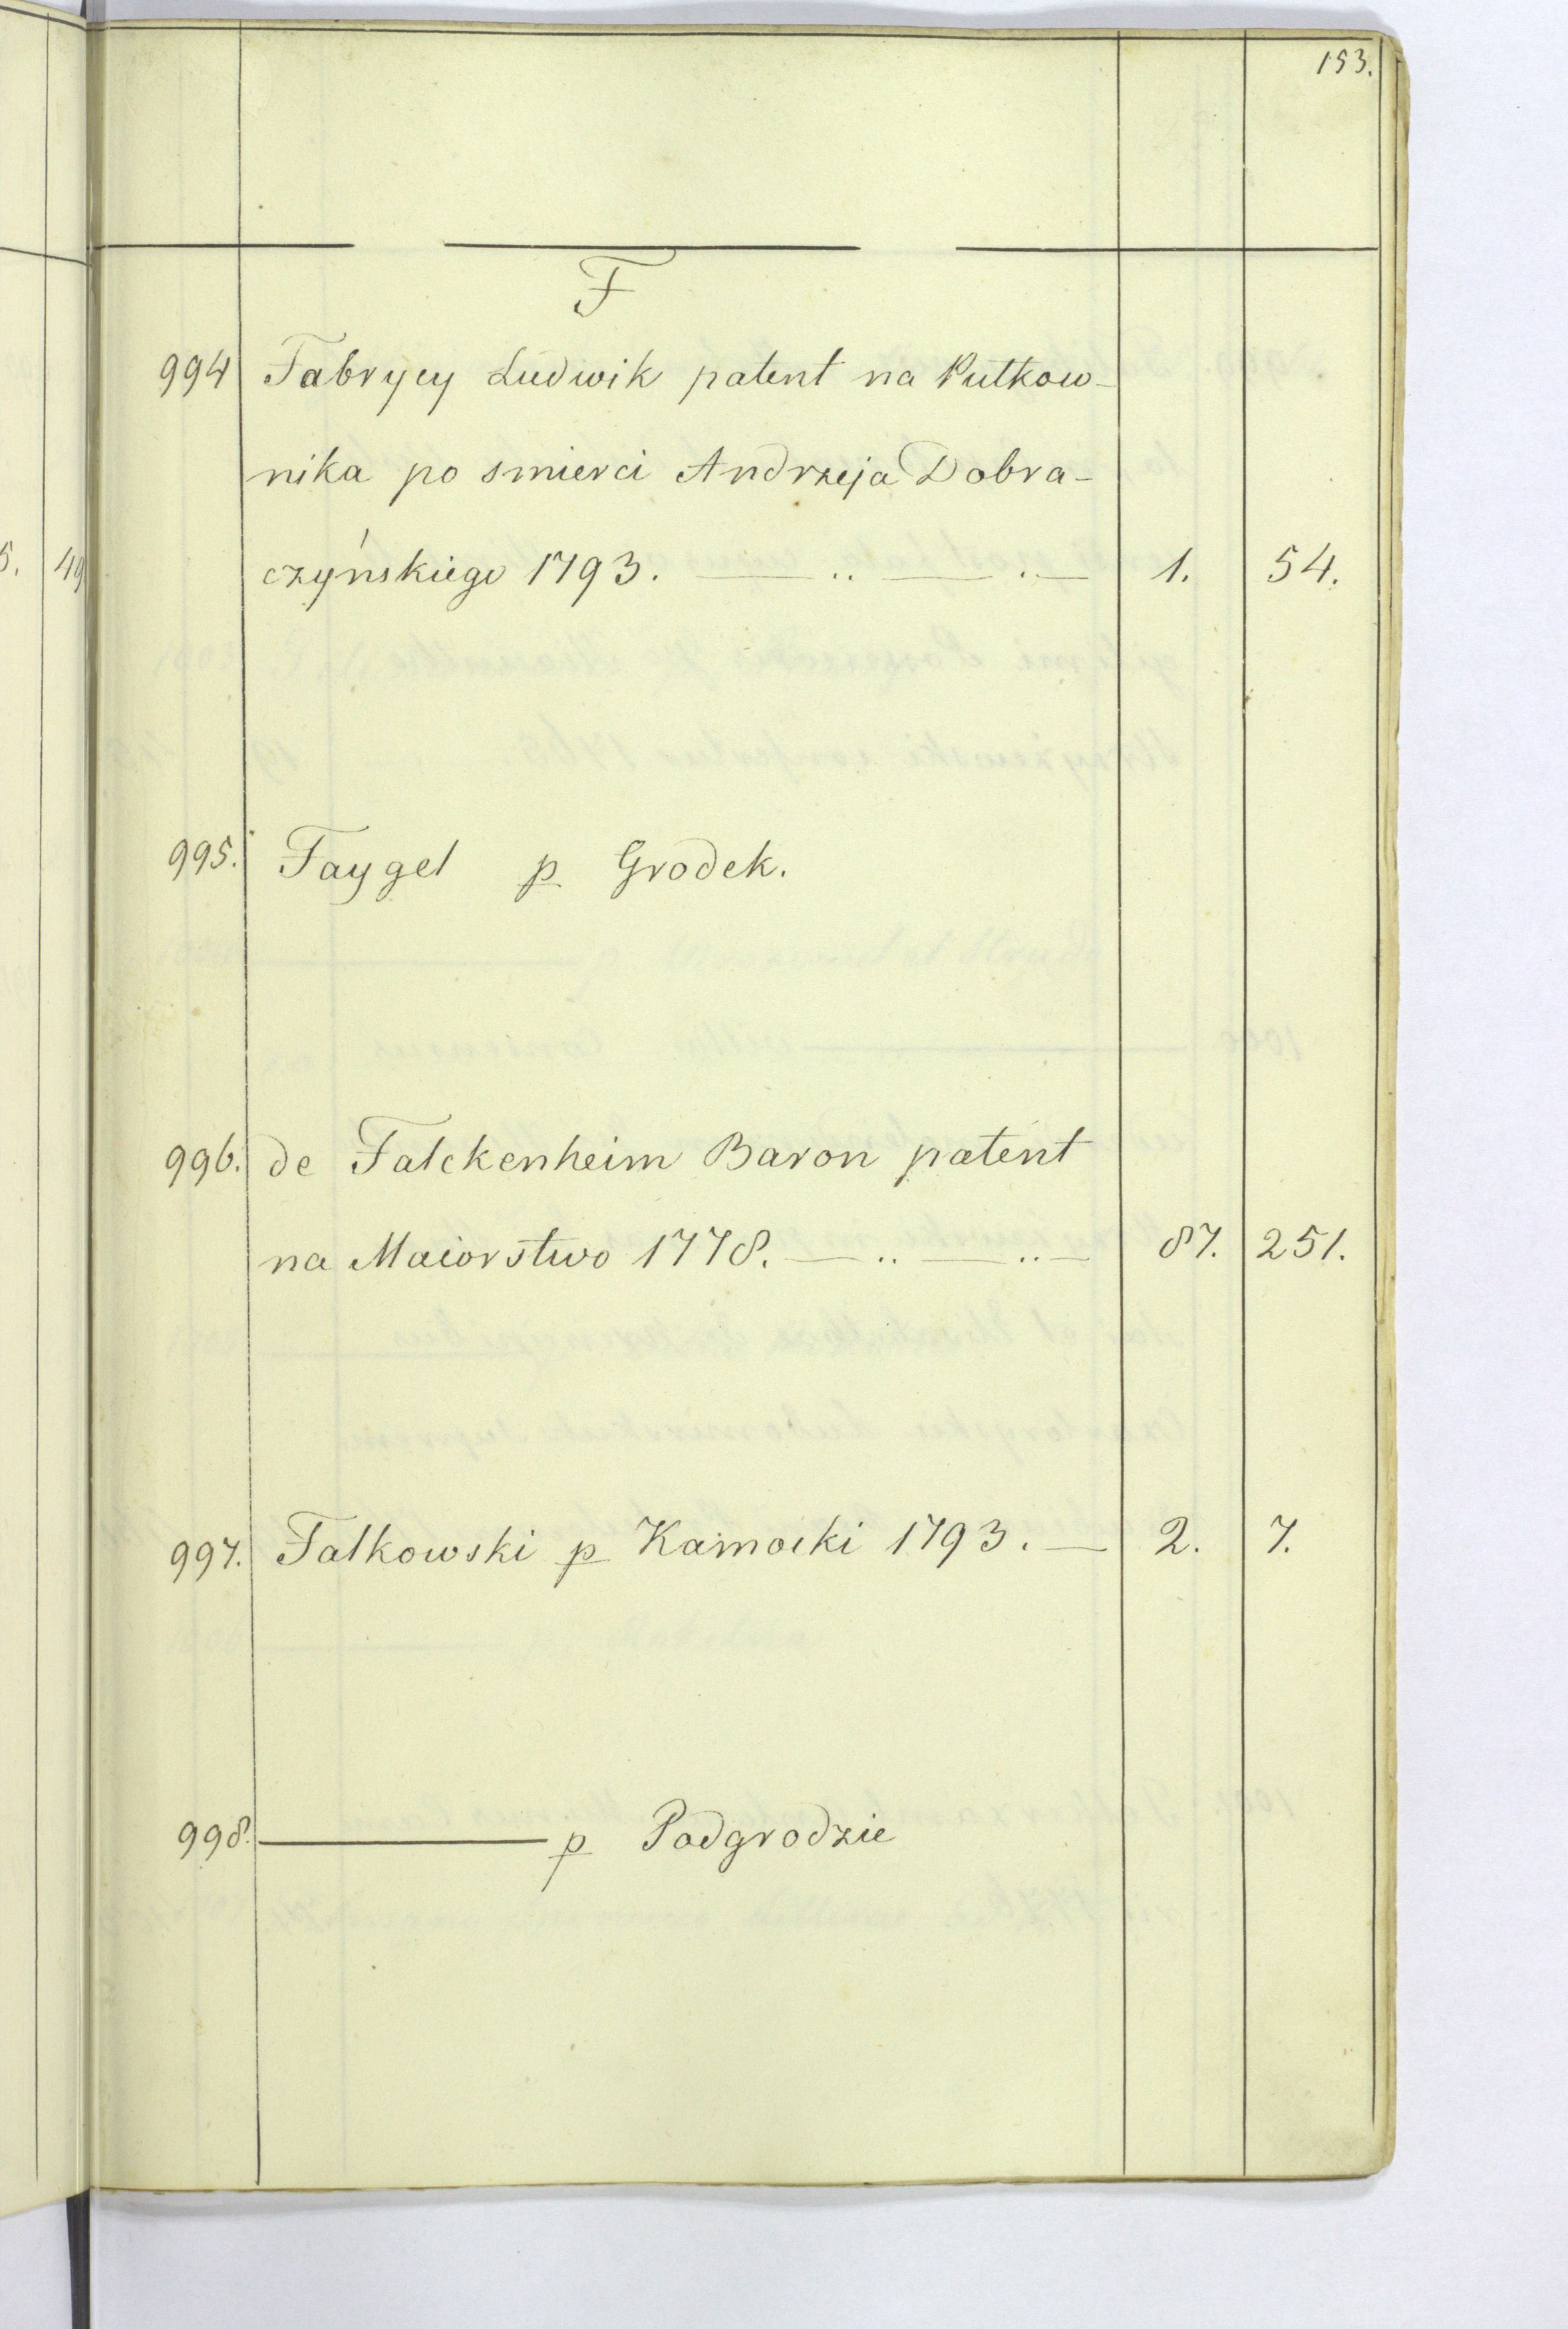 153.
F
994 Fabrycy Ludwik patent na Pułkow-
nika po smierci Andrzeja Dobra-
czyńskiego 1793. — .. — . — 1. 54.
995. Faygel p Grodek.
996. de Falckenheim Baron patent
na Maiorstwo 1778. — .. — .. — 87. 251.
997. Falkowski p Kamocki 1793. — 2. 7.
998. — p Podgrodzie
5. 49